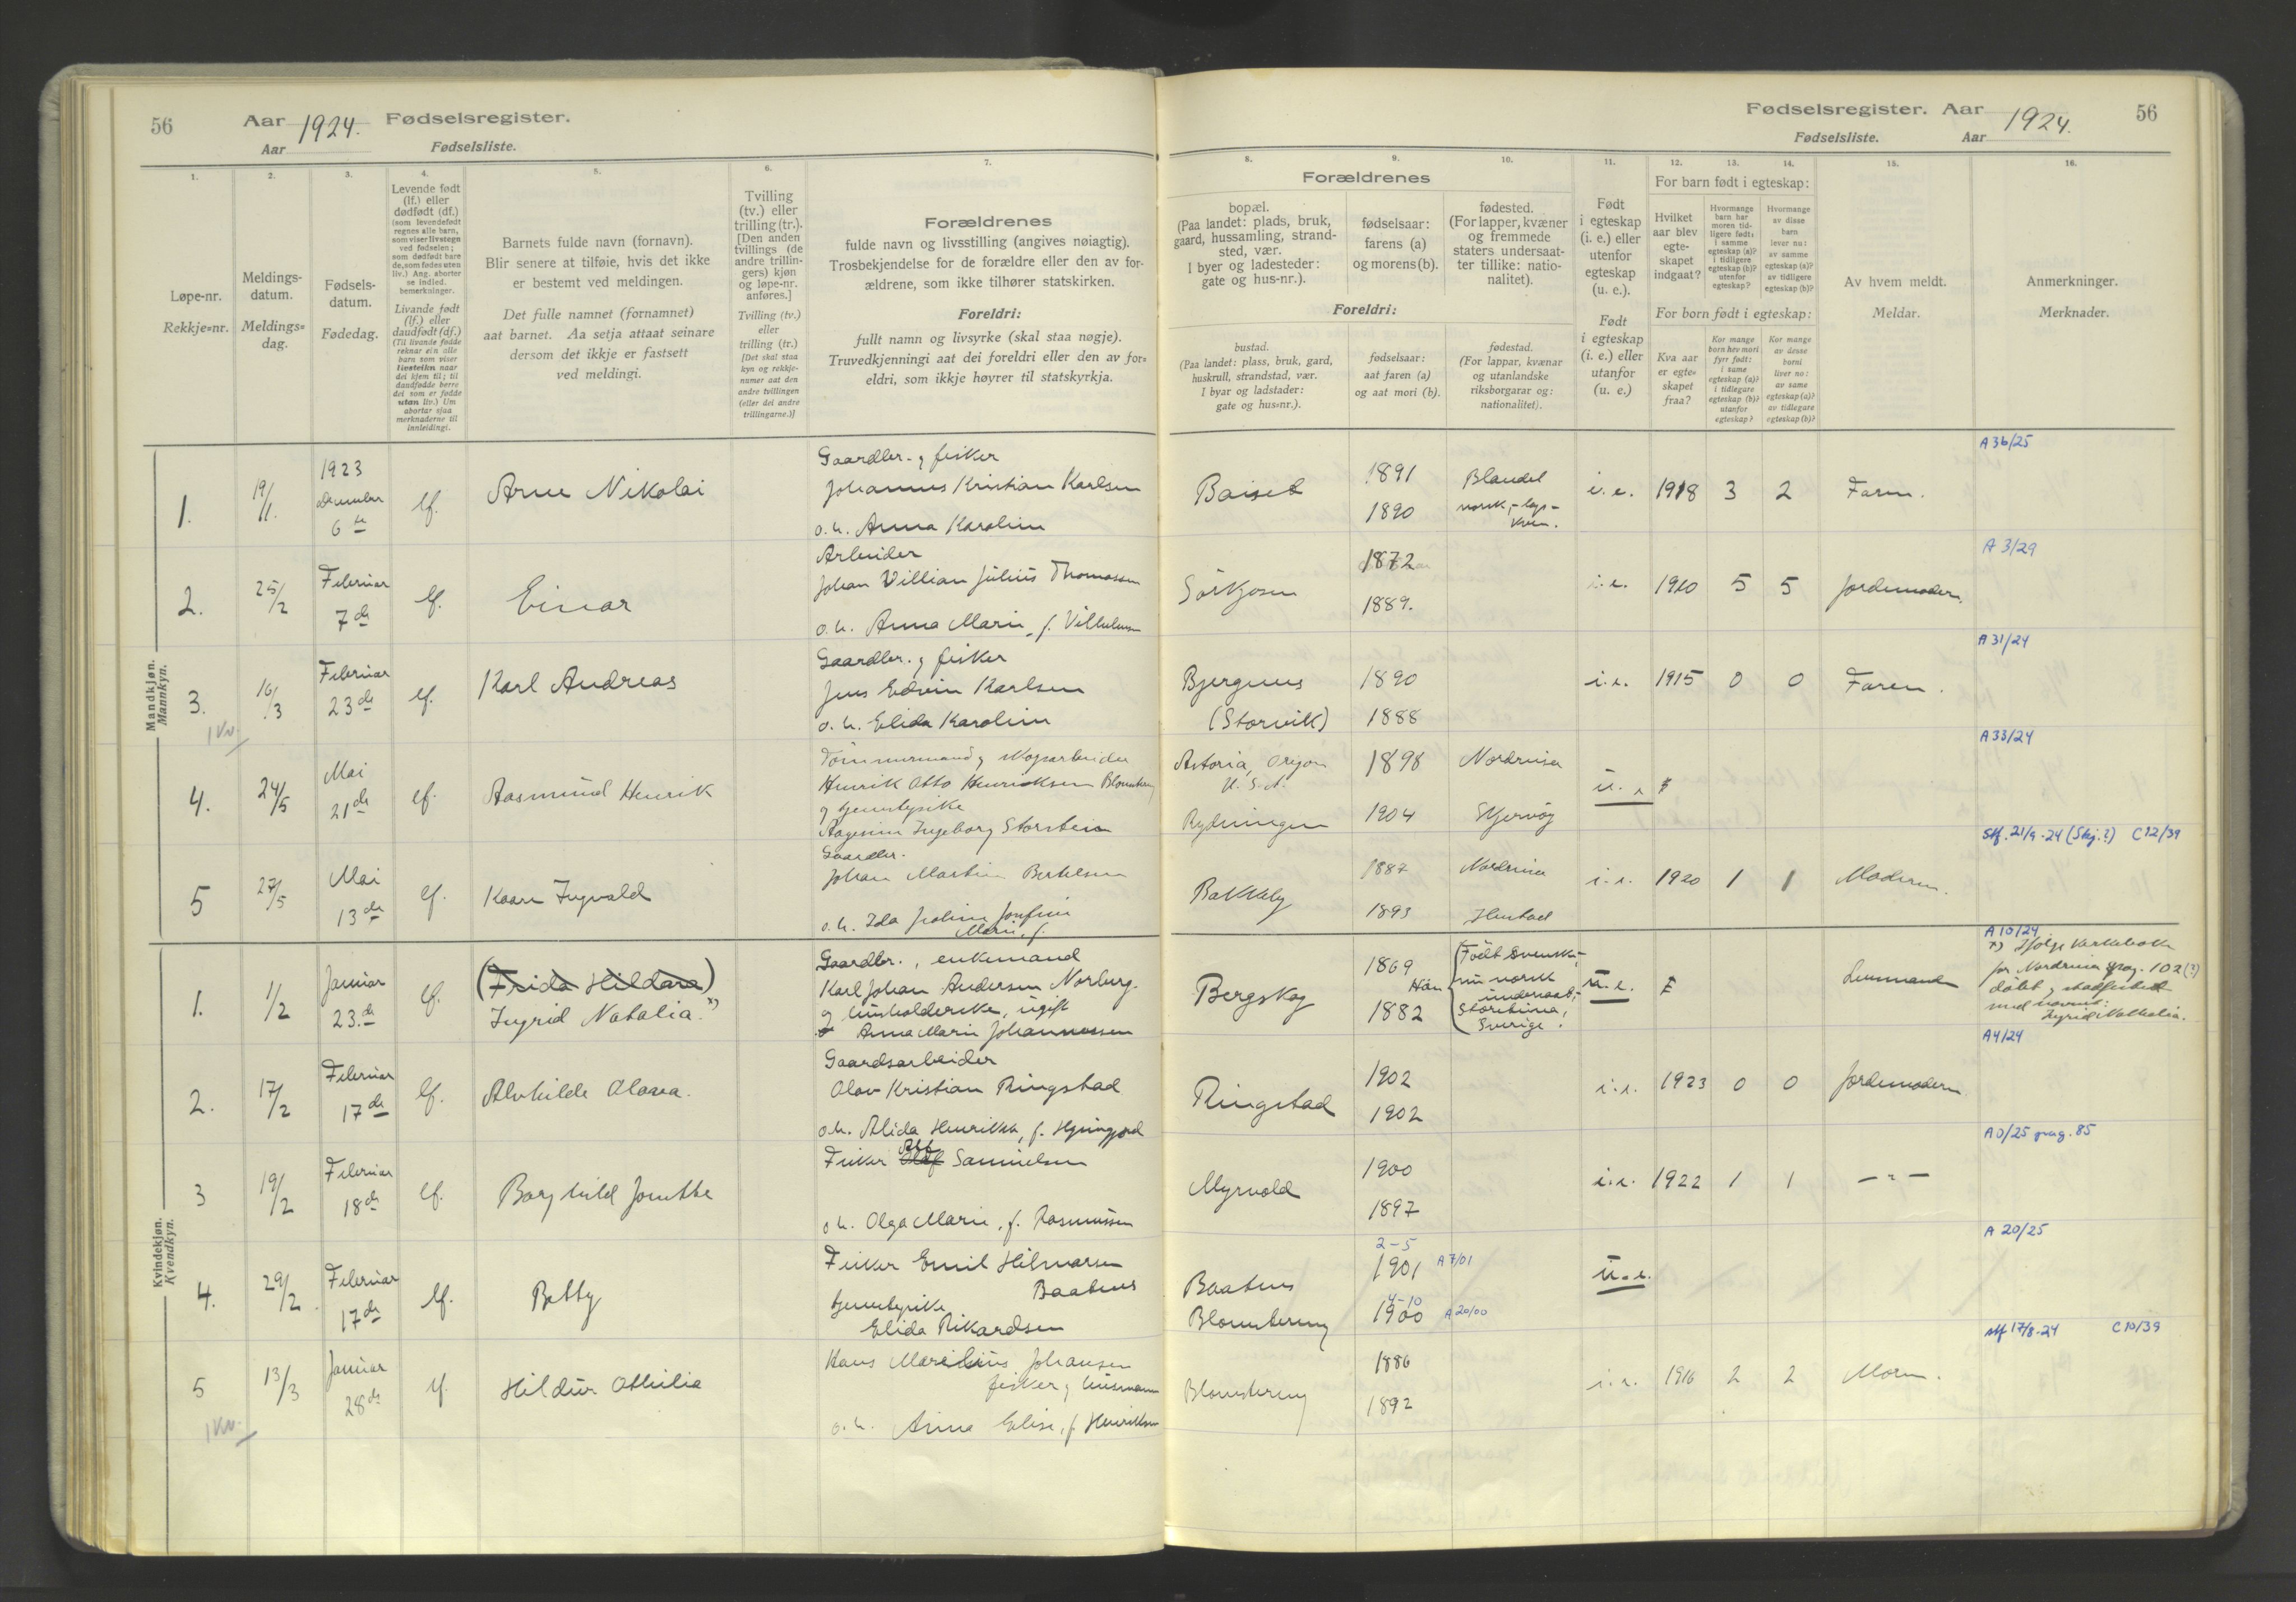 56
Aar 1924. Fødselsregister.
Aar
Fødselsliste.
1.
2.
3.
4.
5.
6.
7.
Løpe-nr.
Rekkje=nr.
Meldings-
datum.
Meldings=
dag.
Fødsels-
datum.
Fødedag.
Levende født
(lf.) eller
dødfødt (df.)
(som levendefødt
regnes alle barn,
som viser livstegn
ved fødselen;
som dødfødt bare
de, som fødes uten
liv.) Ang. aborter
se indled.
bemerkninger.
Livande født
(lf.) eller
daudfødt (df.)
(Til livande fødde
reknar ein alle
barn som viser
livsteikn naar
dei kjem til; til
daudfødde berre
dei som er fødde
utan liv.) Um
abortar sjaa
merknaderne til
innleidingi.
Barnets fulde navn (fornavn).
Blir senere at tilføie, hvis det ikke
er bestemt ved meldingen.
Det fulle namnet (fornamnet)
aat barnet. Aa setja attaat seinare
dersom det ikkje er fastsett
ved meldingi.
Tvilling
(tv.) eller
trilling (tr.).
[Den anden
tvillings (de
andre trillin-
gers) kjøn
og løpe-nr.
anføres.]
Tvilling (tv.)
eller
trilling (tr.)
[Det skal staa
kyn og rekkje-
numer aat den
andre tvillingen
(eller dei andre
trillingarne.)]
Forældrenes
fulde navn og livsstilling (angives nøiagtig).
Trosbekjendelse for de forældre eller den av for-
ældrene, som ikke tilhører statskirken.
Foreldri:
fullt namn og livsyrke (skal staa nøgje).
Truvedkjenningi aat dei foreldri eller den av for=
eldri, som ikkje høyrer til statskyrkja.
Mandkjøn.
Mannkyn.
1.
19/1.
1923
December
6te
lf.
Arne Nikolai
Gaardbr. og fisker
Johannes Kristian Karlsen
o. h. Anna Karoline
2.
25/2
Februar
7de
lf.
Einar
Arbeider
Johan Villian Julius Thomassen
o. h. Anna Marie, f. Vilhelmsen
3.
16/3
Februar
23de
lf.
Karl Andreas
Gaardbr. og fisker
Jens Edvin Karlsen
o. h. Elida Karoline
1 Kv.
4.
24/5
Mai
21de
lf.
Aasmund Henrik
Tømmermand og skogsarbeider
Henrik Otto Henriksen Blomstereng
og tjenestepike
Aagesine Ingeborg Storstein
5
27/5
Mai
13de
lf.
Kaare Ingvald
Gaardbr.
Johan Martin Bertelsen
o. h. Ida Josefine
Marie, f.
Kvindekjøn.
Kvendkyn.
1.
1/2
Januar
23.de
lf.
(Frida Hildara)
Ingrid Natalia. x)
Gaardbr., enkemand
Karl Johan Andersen Norberg.
og husholderske, ugift
Anna Marie Johannessen
2.
17/2
Februar
17de
lf.
Alvhilde Olava.
Gaardsarbeider
Olav Kristian Ringstad
o.h. Alida Henrikka, f.
3
19/2
Februar
18de
lf.
Borghild Jonette
Fisker Olaf Samuelsen
o h. Olga Marie, f. Rasmussen
4.
29/2.
Februar
17de
lf.
Betty
Fisker Emil Hilmarsen
Baatnes
tjenestepike
Elida Rikardsen
5
13/3
Januar
28de
lf.
Hildur Othilie
Hans Marelius Johansen
fisker og husmann
o. h. Anna Elise, f. Henriksen
1 Kv.
Fødselsregister. Aar 1924.
56
Fødselsliste.
Aar
8.
9.
10.
11.
12.
13.
14.
15.
16.
Forældrenes
bopæl.
(Paa landet: plads, bruk,
gaard, hussamling, strand-
sted, vær.
I byer og ladesteder:
gate og hus-nr.).
fødselsaar:
farens (a)
og morens (b).
fødested.
(For lapper, kvæner
og fremmede
staters undersaat-
ter tillike: natio-
nalitet).
Foreldri:
bustad.
(Paa landet: plass, bruk, gard,
huskrull, strandstad, vær.
I byar og ladstader:
gate og hus=nr.).
fødselsaar:
aat faren (a)
og aat mori (b).
fødestad.
(For lappar, kvænar
og utanlandske
riksborgarar og:
nationalitet).
Født
i egteskap
(i. e.) eller
utenfor
egteskap
(u. e.).
Født
i egteskap
(i. e.) eller
utanfor
(u. e.)
For barn født i egteskap:
Hvilket
aar blev
egte-
skapet
indgaat?
Hvormange
barn har
moren tid-
ligere født:
i samme
egteskap (a)?
i tidligere
egteskap (b)?
utenfor
egteskap?
Hvormange
av disse
barn
lever nu:
av samme
egteskap (a)?
av tidligere
egteskap (b)?
For born født i egteskap:
Kva aar
er egte=
skapet
fraa?
Kor mange
born hev mori
fyrr født:
i same
egteskap (a)?
i tidlegare
egteskap (b)?
utanfor
egteskap?
Kor mange
av desse
borni
liver no:
av same
egteskap (a)?
av tidlegare
egteskap (b)?
Av hvem meldt.
Meldar.
Anmerkninger.
Merknader.
Baiset
1891
1890
Blandet
norsk,-lap-
kven.
i. e.
1918
3
2
Faren.
A 36/25
Sørkjosen
1872
1889.
i. e.
1910
5
5
Jordemoderen.
A 3/29
Bjergnes
(Storvik)
1890
1888
i. e.
1915
0
0
Faren.
A 31/24
Astoria, Oregon
U. S. A.
Rydningen
1898
1904
Nordreisa
Skjervøy
u. e
A 33/24
Bakkeby
1887
1893
Nordreisa
i. e.
1920
1
1
Moderen.
Stf. 21/9-24 (Skj.?) C12/39
Bergskog
1869
Hun
1882
Født svensk,
nu norsk
undersaat,
Sverige.
u. e.
Lensmand
A 10/24
x) Ifølge kirkebok
for Nordreisa pag. 102 (?)
døbt og stadfestet
med navnet:
Ingrid Nathalia.
Ringstad
1902
1902
i. e.
1923
0
0
Jordemoderen
A4/24
Myrvold
1900
1897
i. e.
1922
1
1
— " —
A0/25 pag. 85
Baatnes
Blomstereng
2-5
1901 A 7/01
4-10
1900 A 20/00
u. e.
A 20/25
Blomstereng
1886
1892
i. e.
1916
2
2
Moren.
stf 17/8-24 C10/39